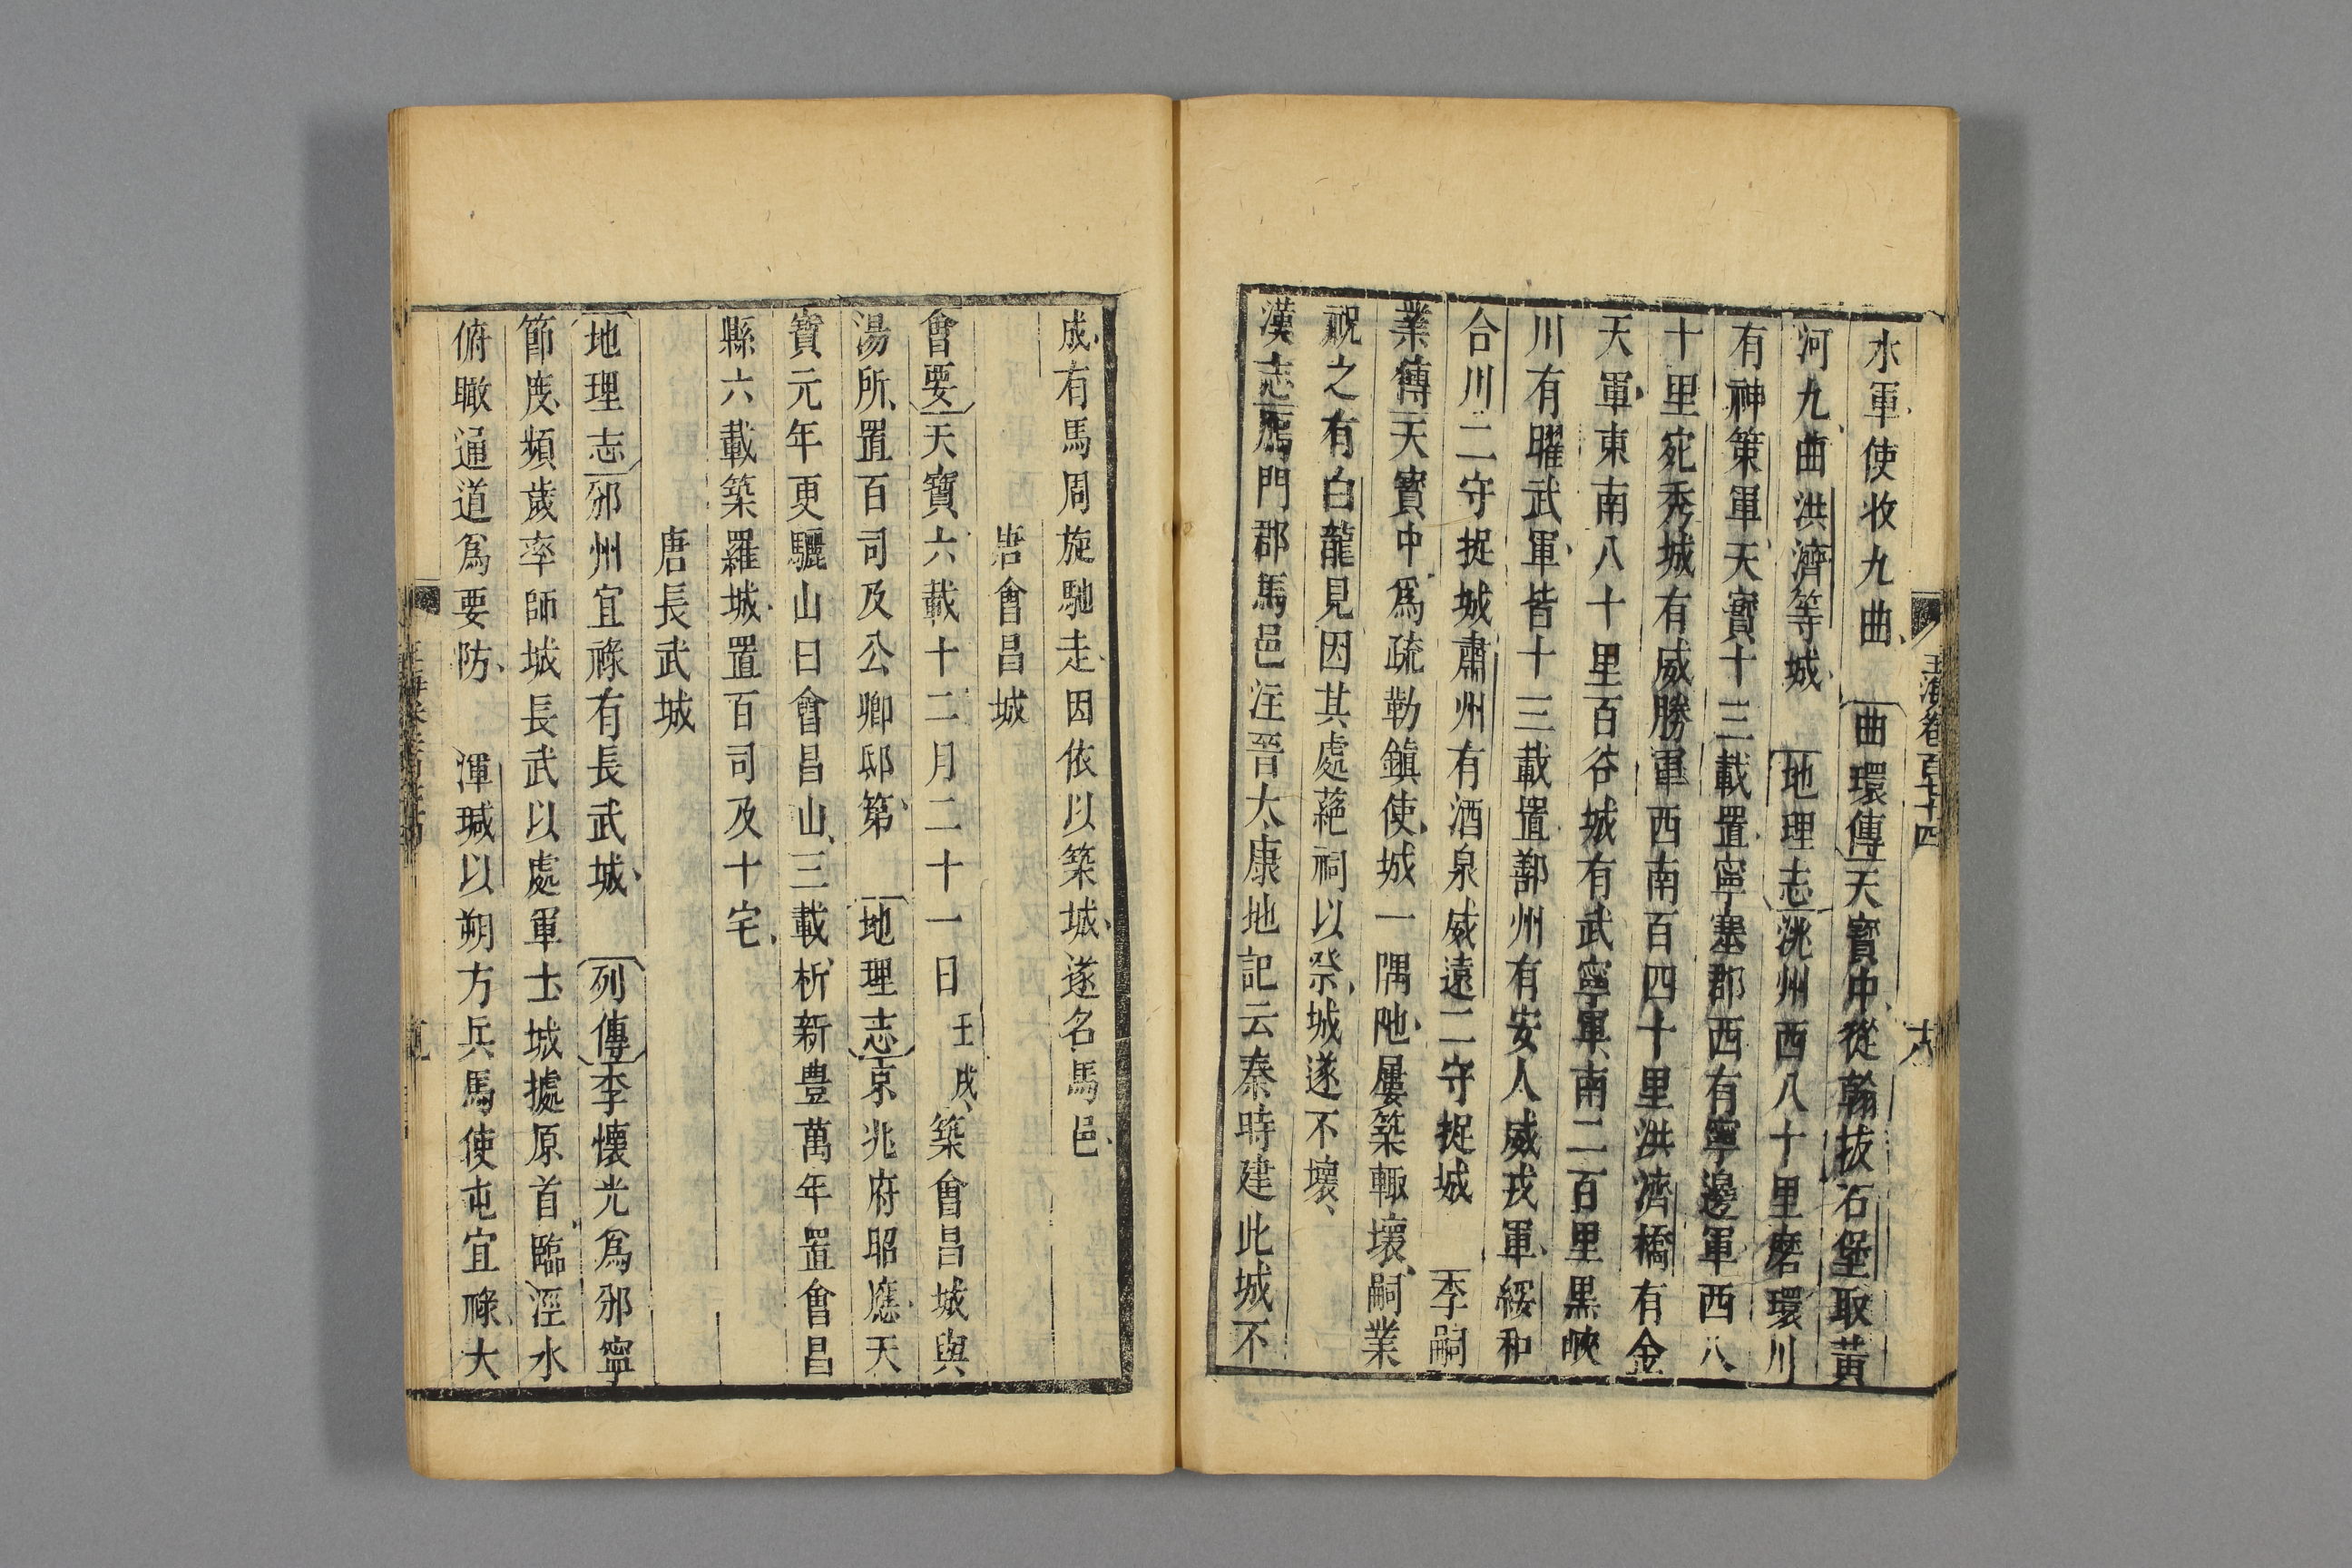 玉海卷百七十四
水軍使收九曲 曲環傳天寶中從翰拔石堡取黃
河九曲洪濟等城 地理志洮州西八十里磨環川
有神策軍天寶十三載置寧塞郡西有寧邊軍西八
十里宛秀城有威勝軍西南百四十里洪濟橋有金
天軍東南八十里百谷城有武寧軍南二百里黑峽
川有曜武軍皆十三載置鄯州有安人威戎軍綏和
合川二守捉城肅州有酒泉威遠二守捉城 李嗣
業傳天寶中爲疏勒鎮使城一隅阤屢築輒壞嗣業
祝之有白龍見因其處蕝祠以祭城遂不壞
漢志鴈門郡馬邑注晉太康地記云秦時建此城不
成有馬周旋馳走因依以築城遂名馬邑
唐會昌城
會要天寶六載十二月二十一日壬戌築會昌城與
湯所置百司及公卿邸第 地理志京兆府昭應天
寶元年更驪山曰會昌山三載析新豊萬年置會昌
縣六載築羅城置百司及十宅
唐長武城
地理志邠州宜祿有長武城 列傳李懷光爲邠寧
節度頻歲率師城長武以處軍士城據原首臨涇水
俯瞰通道爲要防 渾瑊以朔方兵馬使屯宜祿大